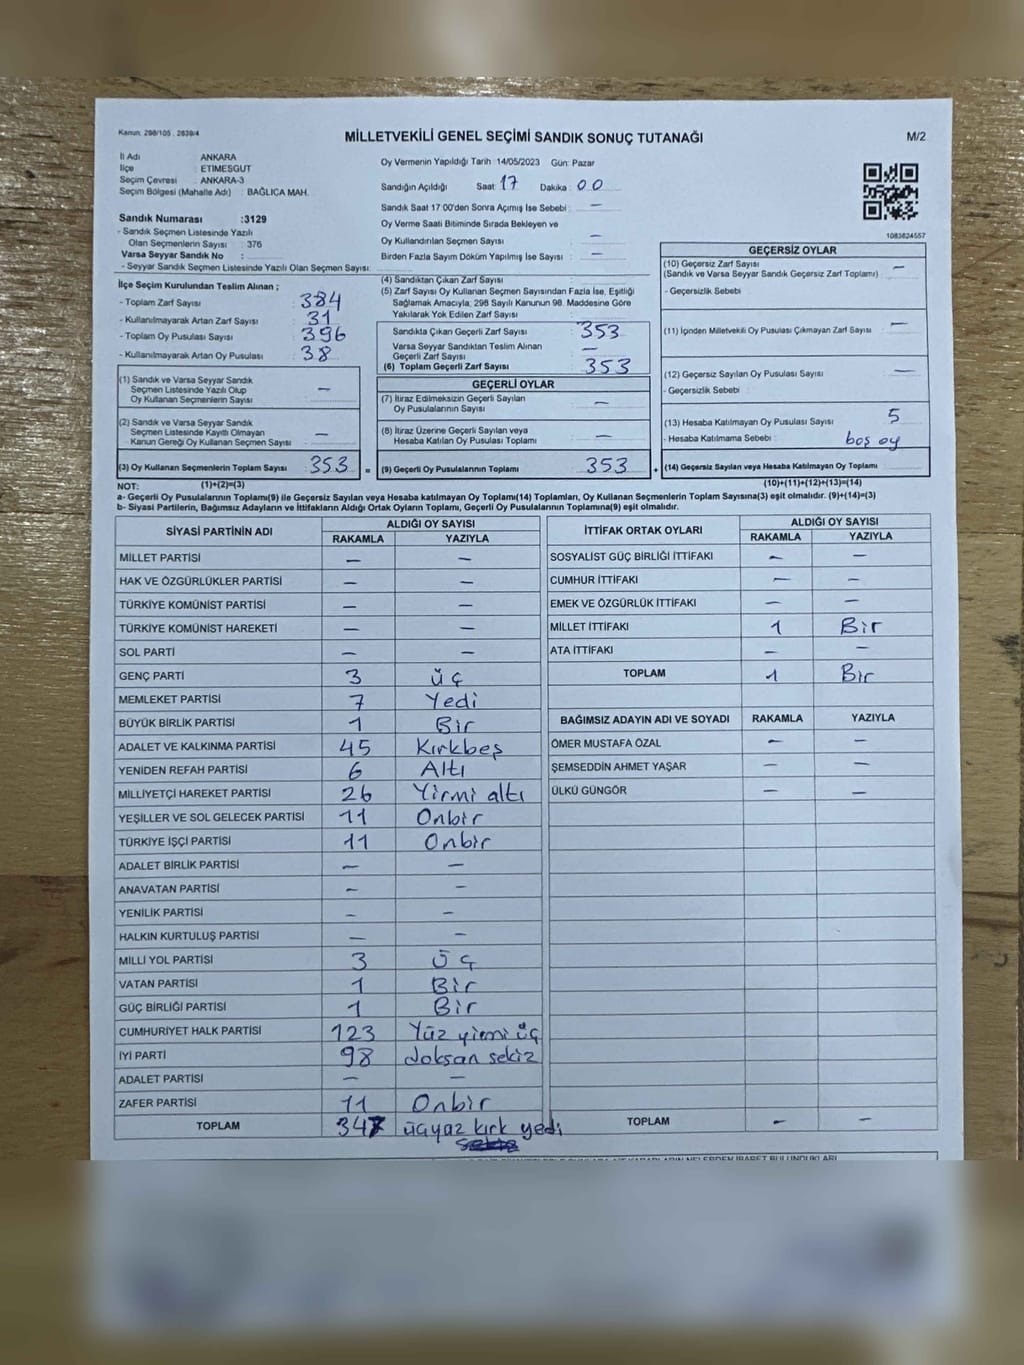 Kanun: 298/105 , 2839/4
MİLLETVEKİLİ GENEL SEÇİMİ SANDIK SONUÇ TUTANAĞI
M/2
İl Adı ANKARA
İlçe : ETİMESGUT
Seçim Çevresi : ANKARA-3
Seçim Bölgesi (Mahalle Adı) : BAĞLICA MAH.
Sandık Numarası :3129
- Sandık Seçmen Listesinde Yazılı
Olan Seçmenlerin Sayısı : 376
Varsa Seyyar Sandık No :
- Seyyar Sandık Seçmen Listesinde Yazılı Olan Seçmen Sayısı:
Oy Vermenin Yapıldığı Tarih 14/05/2023 Gün: Pazar
Sandığın Açıldığı Saat: 17 Dakika : 00
Sandık Saat 17:00'den Sonra Açımış İse Sebebi : -
Oy Verme Saati Bitiminde Sırada Bekleyen ve
Oy Kullandırılan Seçmen Sayısı : -
Birden Fazla Sayım Döküm Yapılmış İse Sayısı : -
1083624557
İlçe Seçim Kurulundan Teslim Alınan ;
- Toplam Zarf Sayısı : 384
- Kullanılmayarak Artan Zarf Sayısı : 31
- Toplam Oy Pusulası Sayısı : 396
- Kullanılmayarak Artan Oy Pusulası : 38
(1) Sandık ve Varsa Seyyar Sandık
Seçmen Listesinde Yazılı Olup
Oy Kullanan Seçmenlerin Sayısı : -
(2) Sandık ve Varsa Seyyar Sandık
Seçmen Listesinde Kayıtlı Olmayan
Kanun Gereği Oy Kullanan Seçmen Sayısı : -
(3) Oy Kullanan Seçmenlerin Toplam Sayısı : 353 =
(4) Sandıktan Çıkan Zarf Sayısı :
(5) Zarf Sayısı Oy Kullanan Seçmen Sayısından Fazla İse, Eşitliği
Sağlamak Amacıyla; 298 Sayılı Kanunun 98. Maddesine Göre
Yakılarak Yok Edilen Zarf Sayısı :
Sandıkta Çıkan Geçerli Zarf Sayısı : 353
Varsa Seyyar Sandıktan Teslim Alınan
Geçerli Zarf Sayısı : -
(6) Toplam Geçerli Zarf Sayısı : 353
GEÇERLİ OYLAR
(7) İtiraz Edilmeksizin Geçerli Sayılan
Oy Pusulalarının Sayısı : -
(8) İtiraz Üzerine Geçerli Sayılan veya
Hesaba Katılan Oy Pusulası Toplamı : -
(9) Geçerli Oy Pusulalarının Toplamı : 353 +
GEÇERSİZ OYLAR
(10) Geçersiz Zarf Sayısı : -
(Sandık ve Varsa Seyyar Sandık Geçersiz Zarf Toplamı)
- Geçersizlik Sebebi :
(11) İçinden Milletvekili Oy Pusulası Çıkmayan Zarf Sayısı : -
(12) Geçersiz Sayılan Oy Pusulası Sayısı : -
- Geçersizlik Sebebi :
(13) Hesaba Katılmayan Oy Pusulası Sayısı : 5
- Hesaba Katılmama Sebebi : boş oy
(14) Geçersiz Sayılan veya Hesaba Katılmayan Oy Toplamı :
NOT: (1)+(2)=(3) (10)+(11)+(12)+(13)=(14)
a- Geçerli Oy Pusulalarının Toplamı(9) ile Geçersiz Sayılan veya Hesaba katılmayan Oy Toplamı(14) Toplamları, Oy Kullanan Seçmenlerin Toplam Sayısına(3) eşit olmalıdır. (9)+(14)=(3)
b- Siyasi Partilerin, Bağımsız Adayların ve İttifakların Aldığı Ortak Oyların Toplamı, Geçerli Oy Pusulalarının Toplamına(9) eşit olmalıdır.
SİYASİ PARTİNİN ADI ALDIĞI OY SAYISI
RAKAMLA YAZIYLA
MİLLET PARTİSİ - -
HAK VE ÖZGÜRLÜKLER PARTİSİ - -
TÜRKİYE KOMÜNİST PARTİSİ - -
TÜRKİYE KOMÜNİST HAREKETİ - -
SOL PARTİ - -
GENÇ PARTİ 3 üç
MEMLEKET PARTİSİ 7 Yedi
BÜYÜK BİRLİK PARTİSİ 1 Bir
ADALET VE KALKINMA PARTİSİ 45 Kırkbeş
YENİDEN REFAH PARTİSİ 6 Altı
MİLLİYETÇİ HAREKET PARTİSİ 26 Yirmi altı
YEŞİLLER VE SOL GELECEK PARTİSİ 11 Onbir
TÜRKİYE İŞÇİ PARTİSİ 11 Onbir
ADALET BİRLİK PARTİSİ - -
ANAVATAN PARTİSİ - -
YENİLİK PARTİSİ - -
HALKIN KURTULUŞ PARTİSİ - -
MİLLİ YOL PARTİSİ 3 Üç
VATAN PARTİSİ 1 Bir
GÜÇ BİRLİĞİ PARTİSİ 1 Bir
CUMHURİYET HALK PARTİSİ 123 Yüz yirmi üç
İYİ PARTİ 98 doksan sekiz
ADALET PARTİSİ - -
ZAFER PARTİSİ 11 Onbir
TOPLAM 347 üçyüz kırk yedi
İTTİFAK ORTAK OYLARI ALDIĞI OY SAYISI
RAKAMLA YAZIYLA
SOSYALİST GÜÇ BİRLİĞİ İTTİFAKI - -
CUMHUR İTTİFAKI - -
EMEK VE ÖZGÜRLÜK İTTİFAKI - -
MİLLET İTTİFAKI 1 Bir
ATA İTTİFAKI - -
TOPLAM 1 Bir
BAĞIMSIZ ADAYIN ADI VE SOYADI RAKAMLA YAZIYLA
ÖMER MUSTAFA ÖZAL - -
ŞEMSEDDİN AHMET YAŞAR - -
ÜLKÜ GÜNGÖR - -
TOPLAM - -